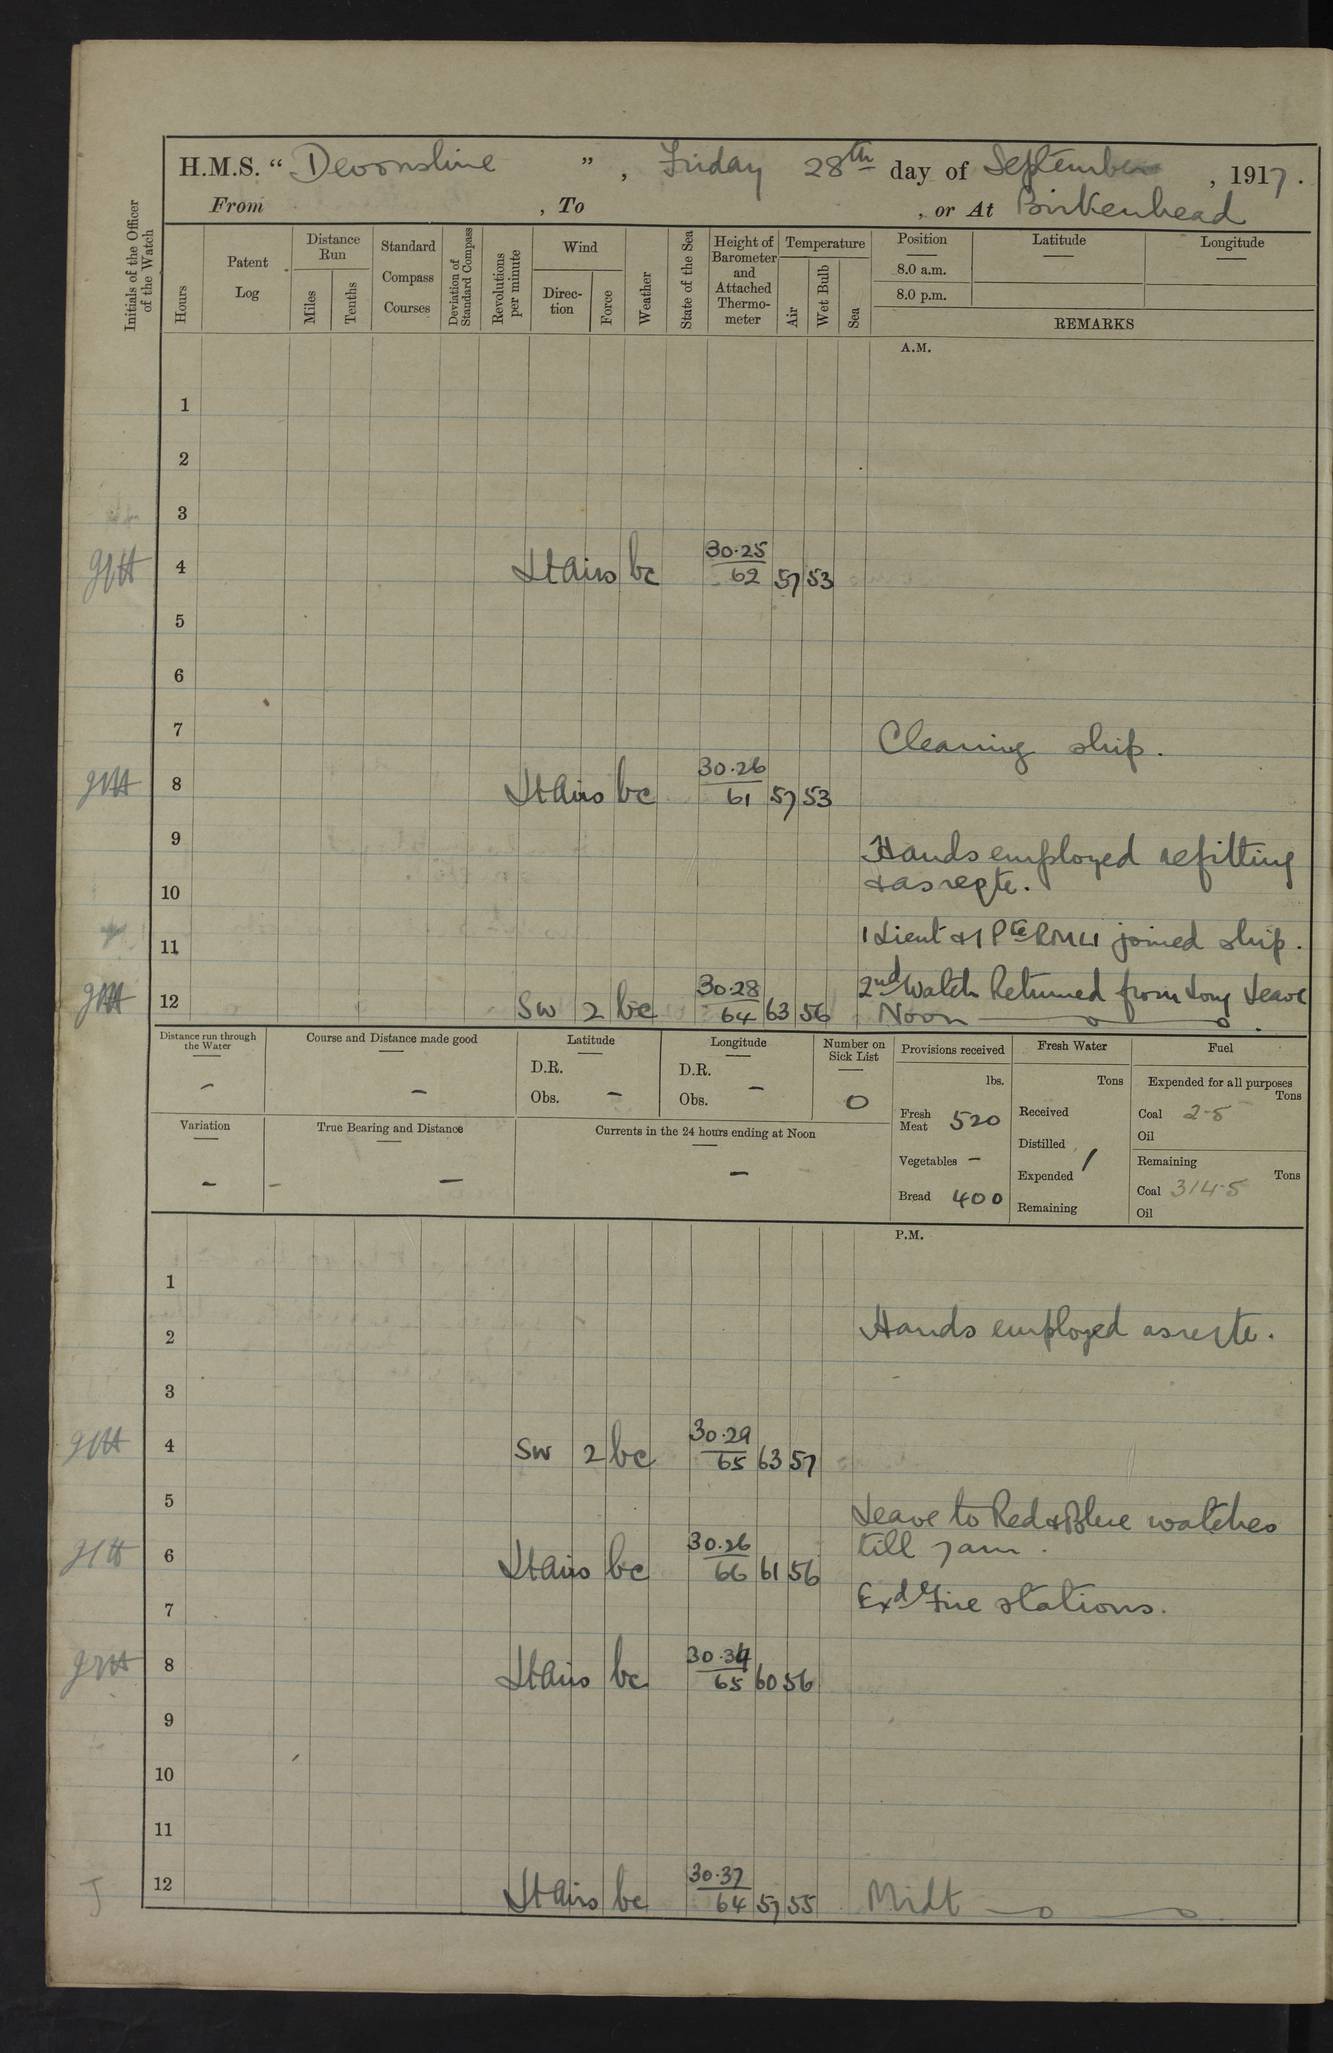 H.M.S. “ Devonshire ” , Friday 28th day of September , 1917 .
From , To , or At Birkenhead
Initials of the Officer of the Watch
Hours
Patent Log
Distance Run
Miles
Tenths
Standard Compass Courses
Deviation of Standard Compass
Revolutions per minute
Wind
Direction
Force
Weather
State of the Sea
Height of Barometer and Attached Thermometer
Temperature
Air
Wet Bulb
Sea
Position
8.0 a.m.
8.0 p.m.
Latitude
Longitude
REMARKS
A.M.
1
2
3
4 Lt airs bc 30.25 62 57 53
5
6
7 Cleaning ship.
8 Lt airs bc 30.26 61 57 53
9 Hands employed refitting
10 & as reqte.
11 1 Lieut & 1 Pte RMLI joined ship.
12 SW 2 bc 30.28 64 63 56 2nd Watch Returned from Long Leave
Noon
Distance run through the Water –
Course and Distance made good –
Latitude
D.R.
Obs. –
Longitude
D.R. –
Obs.
Number on Sick List
0
Provisions received
lbs.
Fresh Meat 520
Vegetables –
Bread 400
Fresh Water
Tons
Received
Distilled
Expended /
Remaining
Fuel
Expended for all purposes
Tons
Coal 2.5
Oil
Remaining
Tons
Coal 314.5
Oil
Variation
–
True Bearing and Distance
– –
Currents in the 24 hours ending at Noon
–
P.M.
1
2 Hands employed as reqte.
3
4 SW 2 bc 30.29 65 63 57
5 Leave to Red & Blue watches
6 Lt airs bc 30.26 66 61 56 till 7 am.
7 Exd Fire stations.
8 Lt airs bc 30.34 65 60 56
9
10
11
12 Lt airs bc 30.37 64 57 55 Midt